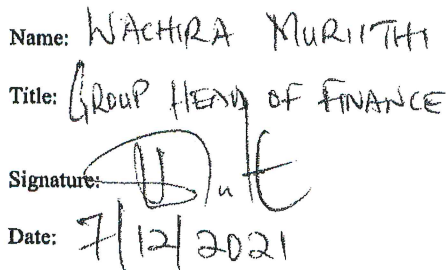 Name: WACHIRA MURIITHI
Title: GROUP HEAD OF FINANCE
Signature:
Date: 7/12/2021